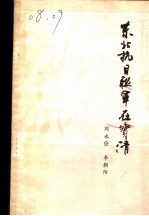 08.09
东北抗日联军在宝清
刘永俭
李朝阳